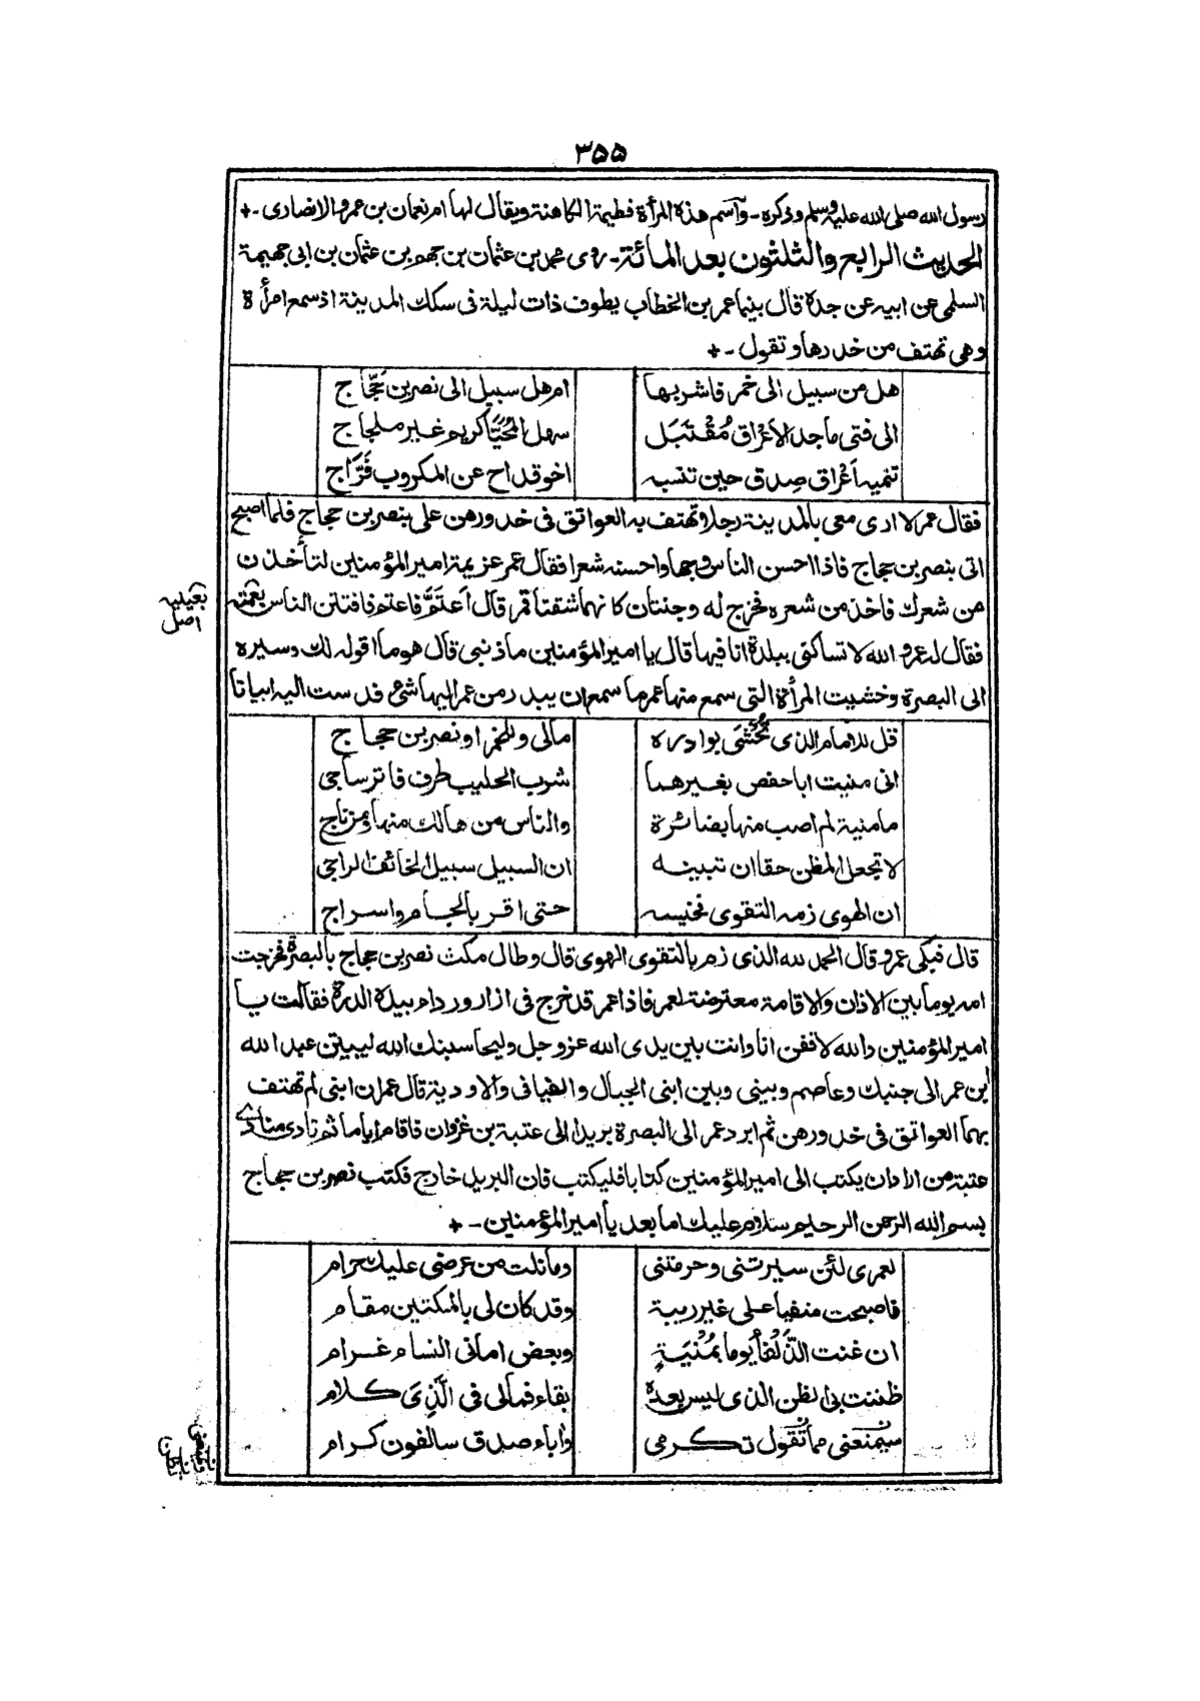 ٣٥٥
رسول الله صلى الله عليه وسلم وذكره - وآسم هذه المرأة فطيمة الكاهنة ويقال لها ام نعمان بن عمرو الانصارى - +
الحديث الرابع والثلثون بعد المائة - روى محمد بن عثمان بن جهم بن عثمان بن ابى جهيمة
السلمى عن ابيه عن جدة قال بينما عمر بن الخطاب يطوف ذات ليلة فى سكك المدينة اذ سمع امرأة
وهى تهتف من خدرها وتقول - +
هل من سبيل الى خمر فاشربها ام هل سبيل الى نصر بن حَجّاج
الى فتى ماجد الاعْراق مُقْتَبَل سهل المُحَيَّا كريم غير ملجاج
تنميه اَعْراق صِدق حين تنسبه اخو قداح عن المكروب فَرَّاج
فقال عمر لا ارى معى بالمدينة رجلا وتهتف به العواتق فى خدورهن على بنصر بن حجاج فلما اصبح
اتى بنصر بن حجاج فاذا احسن الناس وجها واحسنه شعرا فقال عمر عزيمة امير المؤمنين لتأخذن
من شعرك فاخذ من شعره فخرج له وجنتان كانهما شقتا قمر قال اَعتَمَّ فاعتم فافتتن الناس بعمته
فقال له عمرو الله لا تساكنى ببلدة انا فيها قال يا امير المؤمنين ما ذنبى قال هو ما اقوله لك وسيره
الى البصرة وخشيت المرأة التى سمع منها عمر ما سمع ان يبدر من عمر اليها شئ فدست اليه ابياتا
قل للامام الذى تُخْشَى بوادره مالى وللخمر او نصر بن حجاج
انى منيت ابا حفص بغيرهما شرب الحليب طرف فاتر ساجى
ما منية لم اصب منها بضائرة والناس من هالك منها ومن ناج
لا تجعل الظن حقا ان تبينه ان السبيل سبيل الخائف الراجى
ان الهوى زمه التقوى فخيسه حتى اقر بالجام واسراج
قال فبكى عمر وقال الحمد لله الذى زم بالتقوى الهوى قال وطال مكث نصر بن حجاج بالبصرة فخرجت
امه يوما بين الاذان والاقامة معترضة لعمر فاذا عمر قد خرج فى ازار ورداء بيده الدرة فقالت يا
امير المؤمنين والله لاقفن انا وانت بين يدى الله عز وجل وليحاسبنك الله ليبيتن عبد الله
ابن عمر الى جنبك وعاصم وبينى وبين ابنى الجبال والفيافى والاودية قال عمران ابنى لم تهتف
بهما العواتق فى خدورهن ثم ابرد عمر الى البصرة بريدا الى عتبة بن غزوان فاقام اياما ثم نادى منادى
عتبة من اراد ان يكتب الى امير المؤمنين كتابا فليكتب فان البريد خارج فكتب نصر بن حجاج
بسم الله الرحمن الرحيم سلام عليك اما بعد يا امير المؤمنين - +
لعمرى لئن سيرتنى وحرمتنى وما نلت من عرضى عليك حرام
فاصبحت منفيا على غير ريبة وقد كان لى بالمكتين مقام
ان غنت الذَّلْفا يوما بمُنْيَةٍ وبعض امانى النساء غرام
ظننت بى الظن الذى ليس بعده بقاء فمالى فى الَّذِىَ كلام
سيمنعنى مما تَقول تكرمى واباء صدق سالفون كرام